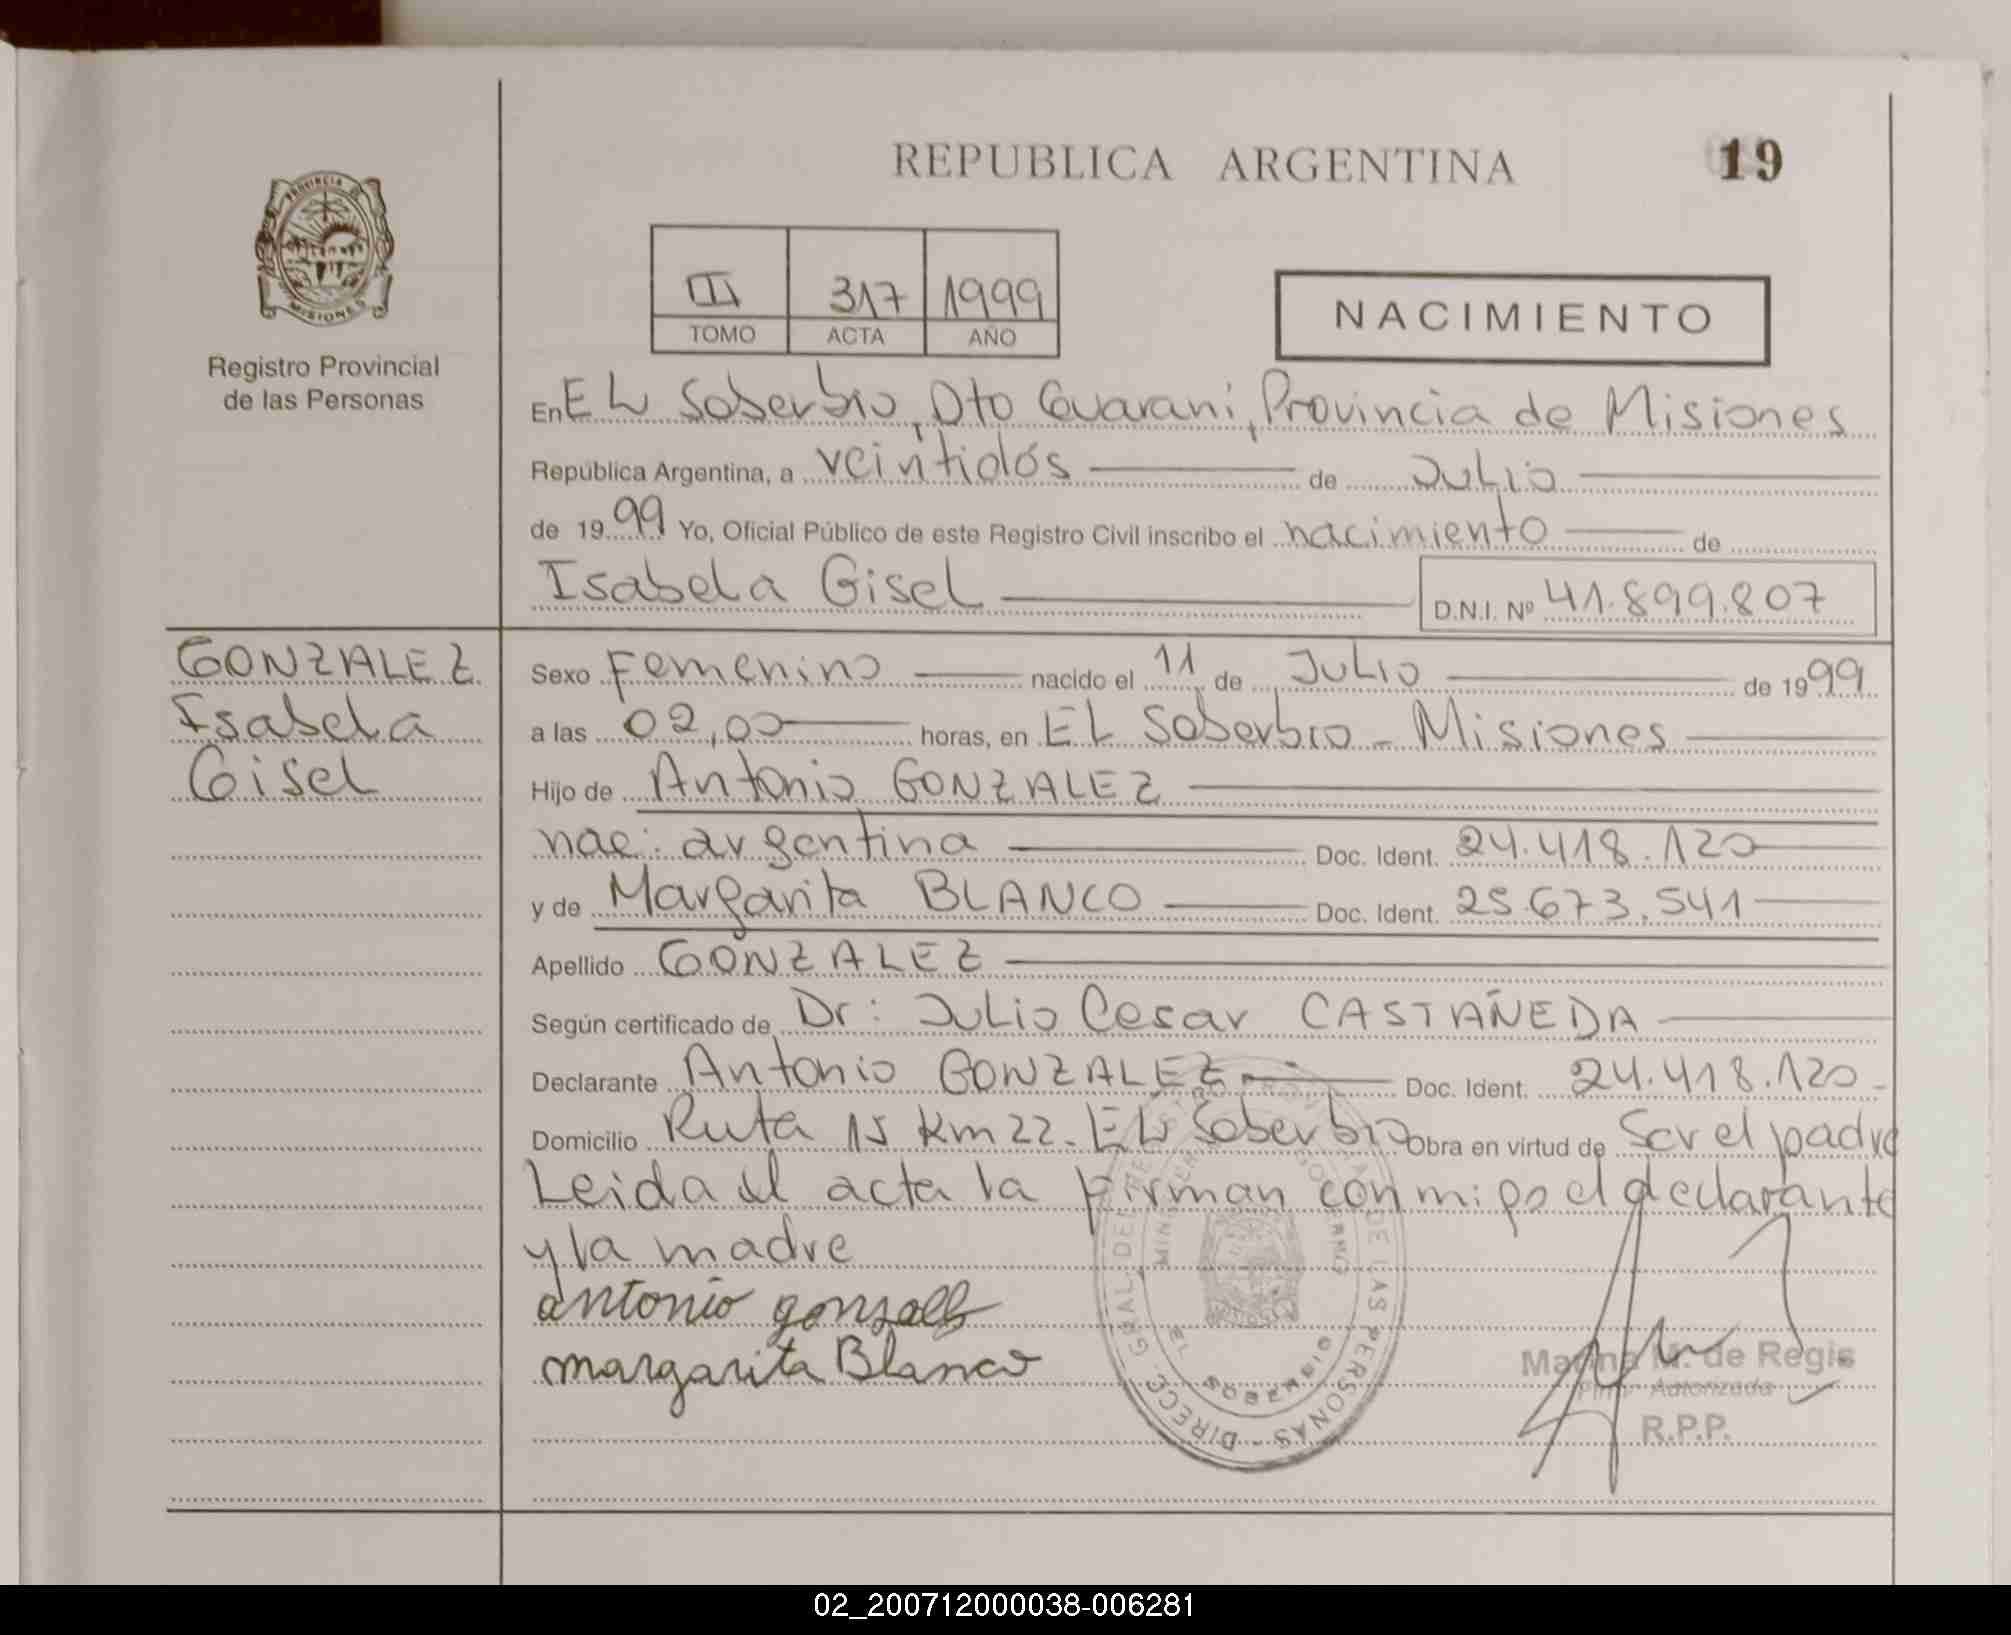 REPUBLICA ARGENTINA
19
PROVINCIA DE MISIONES
Registro Provincial
de las Personas
III 317 1999
TOMO ACTA AÑO
NACIMIENTO
En EL Soberbio, Dto Guarani, Provincia de Misiones
República Argentina, a veintidós de Julio
de 1999 Yo, Oficial Público de este Registro Civil inscribo el nacimiento de
Isabela Gisel D.N.I. Nº 41.899.807
GONZALEZ
Isabela
Gisel
Sexo Femenino nacido el 11 de Julio de 1999
a las 02,00 horas, en EL Soberbio - Misiones
Hijo de Antonio GONZALEZ
nac: argentina Doc. Ident. 24.418.120
y de Margarita BLANCO Doc. Ident. 25.673.541
Apellido GONZALEZ
Según certificado de Dr: Julio Cesar CASTAÑEDA
Declarante Antonio GONZALEZ Doc. Ident. 24.418.120-
Domicilio Ruta 15 km 22. EL Soberbio Obra en virtud de Ser el padre
Leida el acta la firman conmigo el declarante
y la madre
antonio gonzalez
margarita Blanco
DIRECC. GRAL. DEL REGISTRO PROVINCIAL DE LAS PERSONAS
EL SOBERBIO
Marina M. de Regis
Firma Autorizada
R.P.P.
02_200712000038-006281